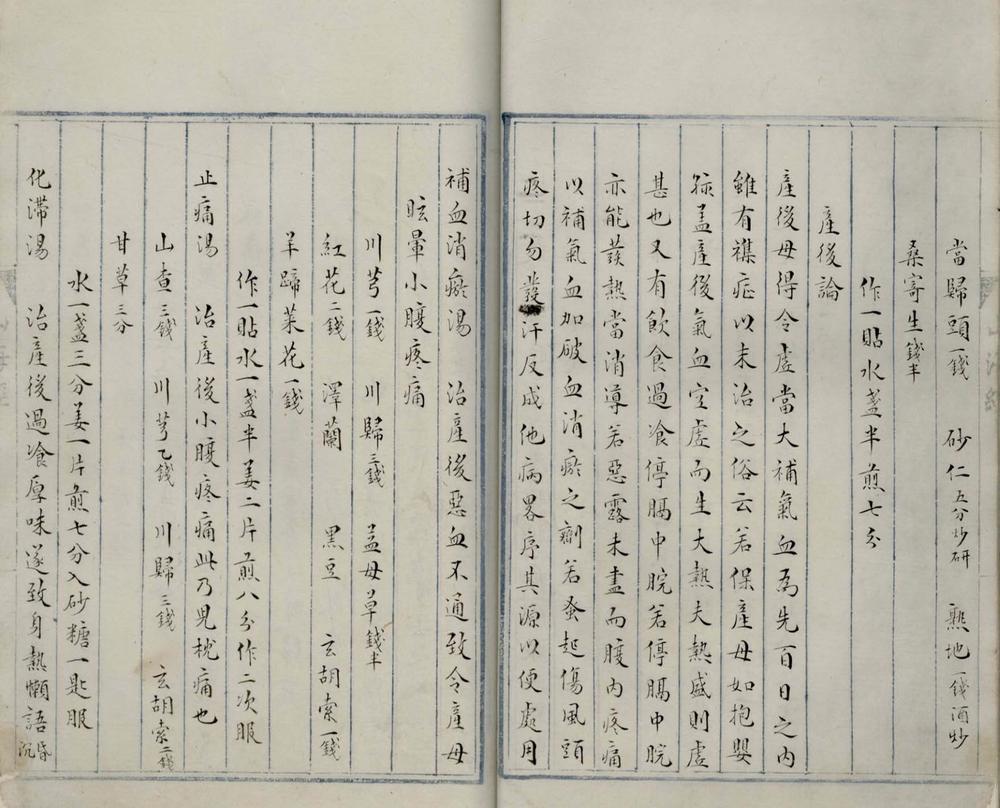 當歸頭一錢 砂仁五分炒研 熟地一錢酒炒
桑寄生錢半
作一貼水盞半煎七分
產後論
產後母得令虛當大補氣血為先百日之內
雖有襍症以末治之俗云若保產母如抱嬰
孩盖產後氣血空虛而生大熱夫熱盛則虛
甚也又有飲食過飡停膈中脘若停膈中脘
亦能發熱當消導若惡露未盡而腹內疼痛
以補氣血加破血消瘀之劑若蚤起傷風頭
疼切勿發汗反成他病畧序其源以便處用
補血消瘀湯 治產後惡血不通致令產母
眩暈小腹疼痛
川芎一錢 川歸三錢 益母草錢半
紅花二錢 澤蘭 黑豆 玄胡索一錢
羊蹄菜花一錢
作一貼水一盞半姜二片煎八分作二次服
止痛湯 治產後小腹疼痛此乃兒枕痛也
山查三錢 川芎乙錢 川歸三錢 玄胡索二錢
甘草三分
水一盞三分姜一片煎七分入砂糖一匙服
化滯湯 治產後過飡厚味遂致身熱懶語昏沉